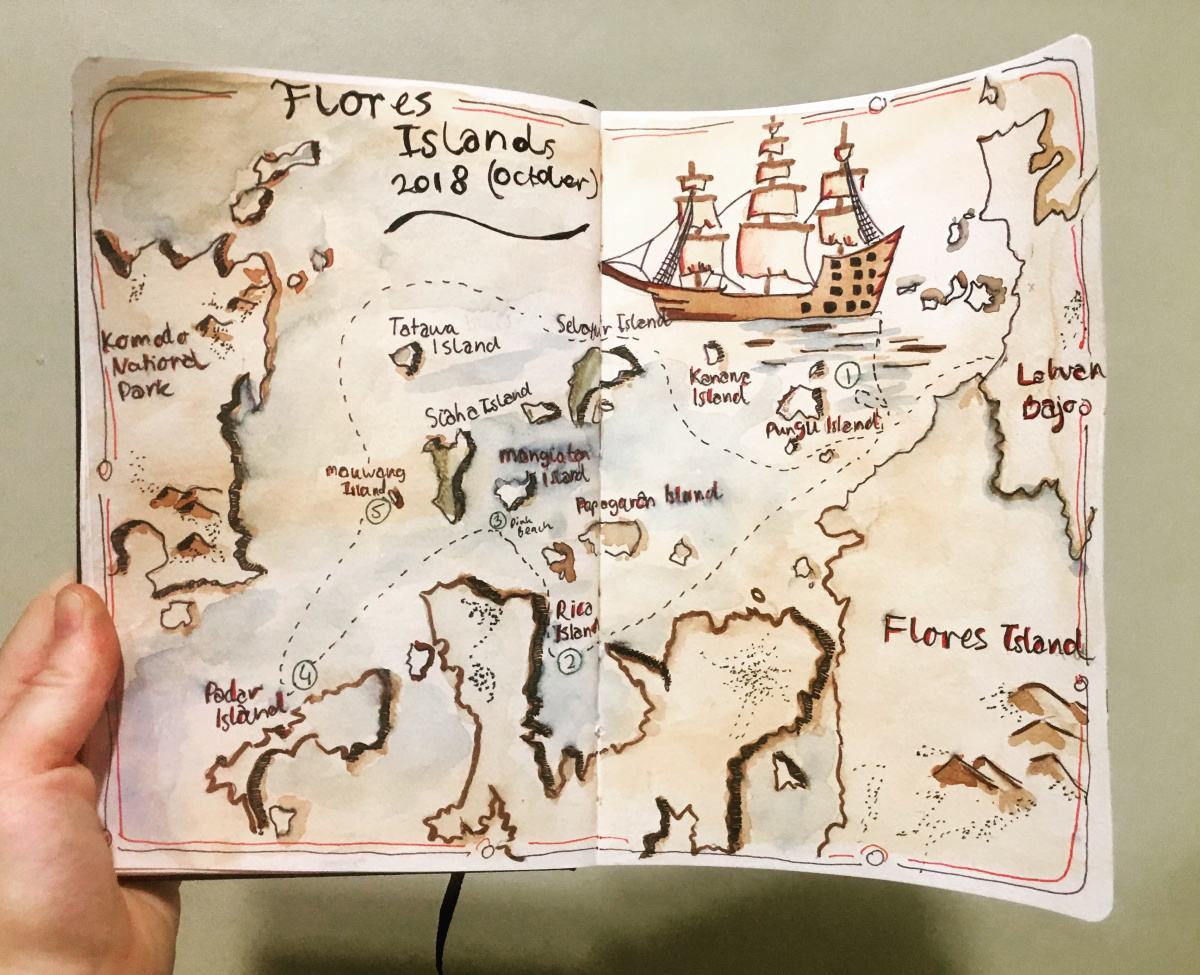 Flores
Islands
2018 (October)
Komodo
National
Park
Tatawa
Island
Selayur Island
Kanava
Island
①
Pungu Island
Labuan
Bajoo
Siaha Island
mauwang
Island
⑤
mangiatan
Island
③ Pink
Beach
Papagarán Island
Rica
Island
②
Flores Island
④
Padar
Island